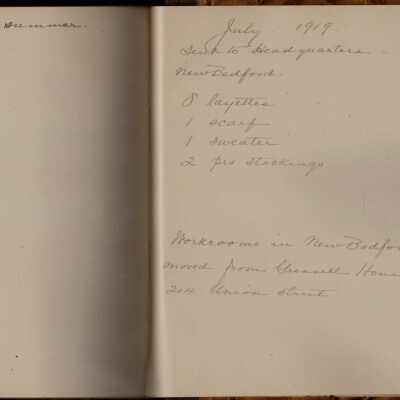 summer.
July 1919.
Sent to Headquarters -
New Bedford.
8 layettes
1 scarf
1 sweater
2 prs stockings
Workrooms in New Bedfor
moved from Grinnell Hous
204 Union Street